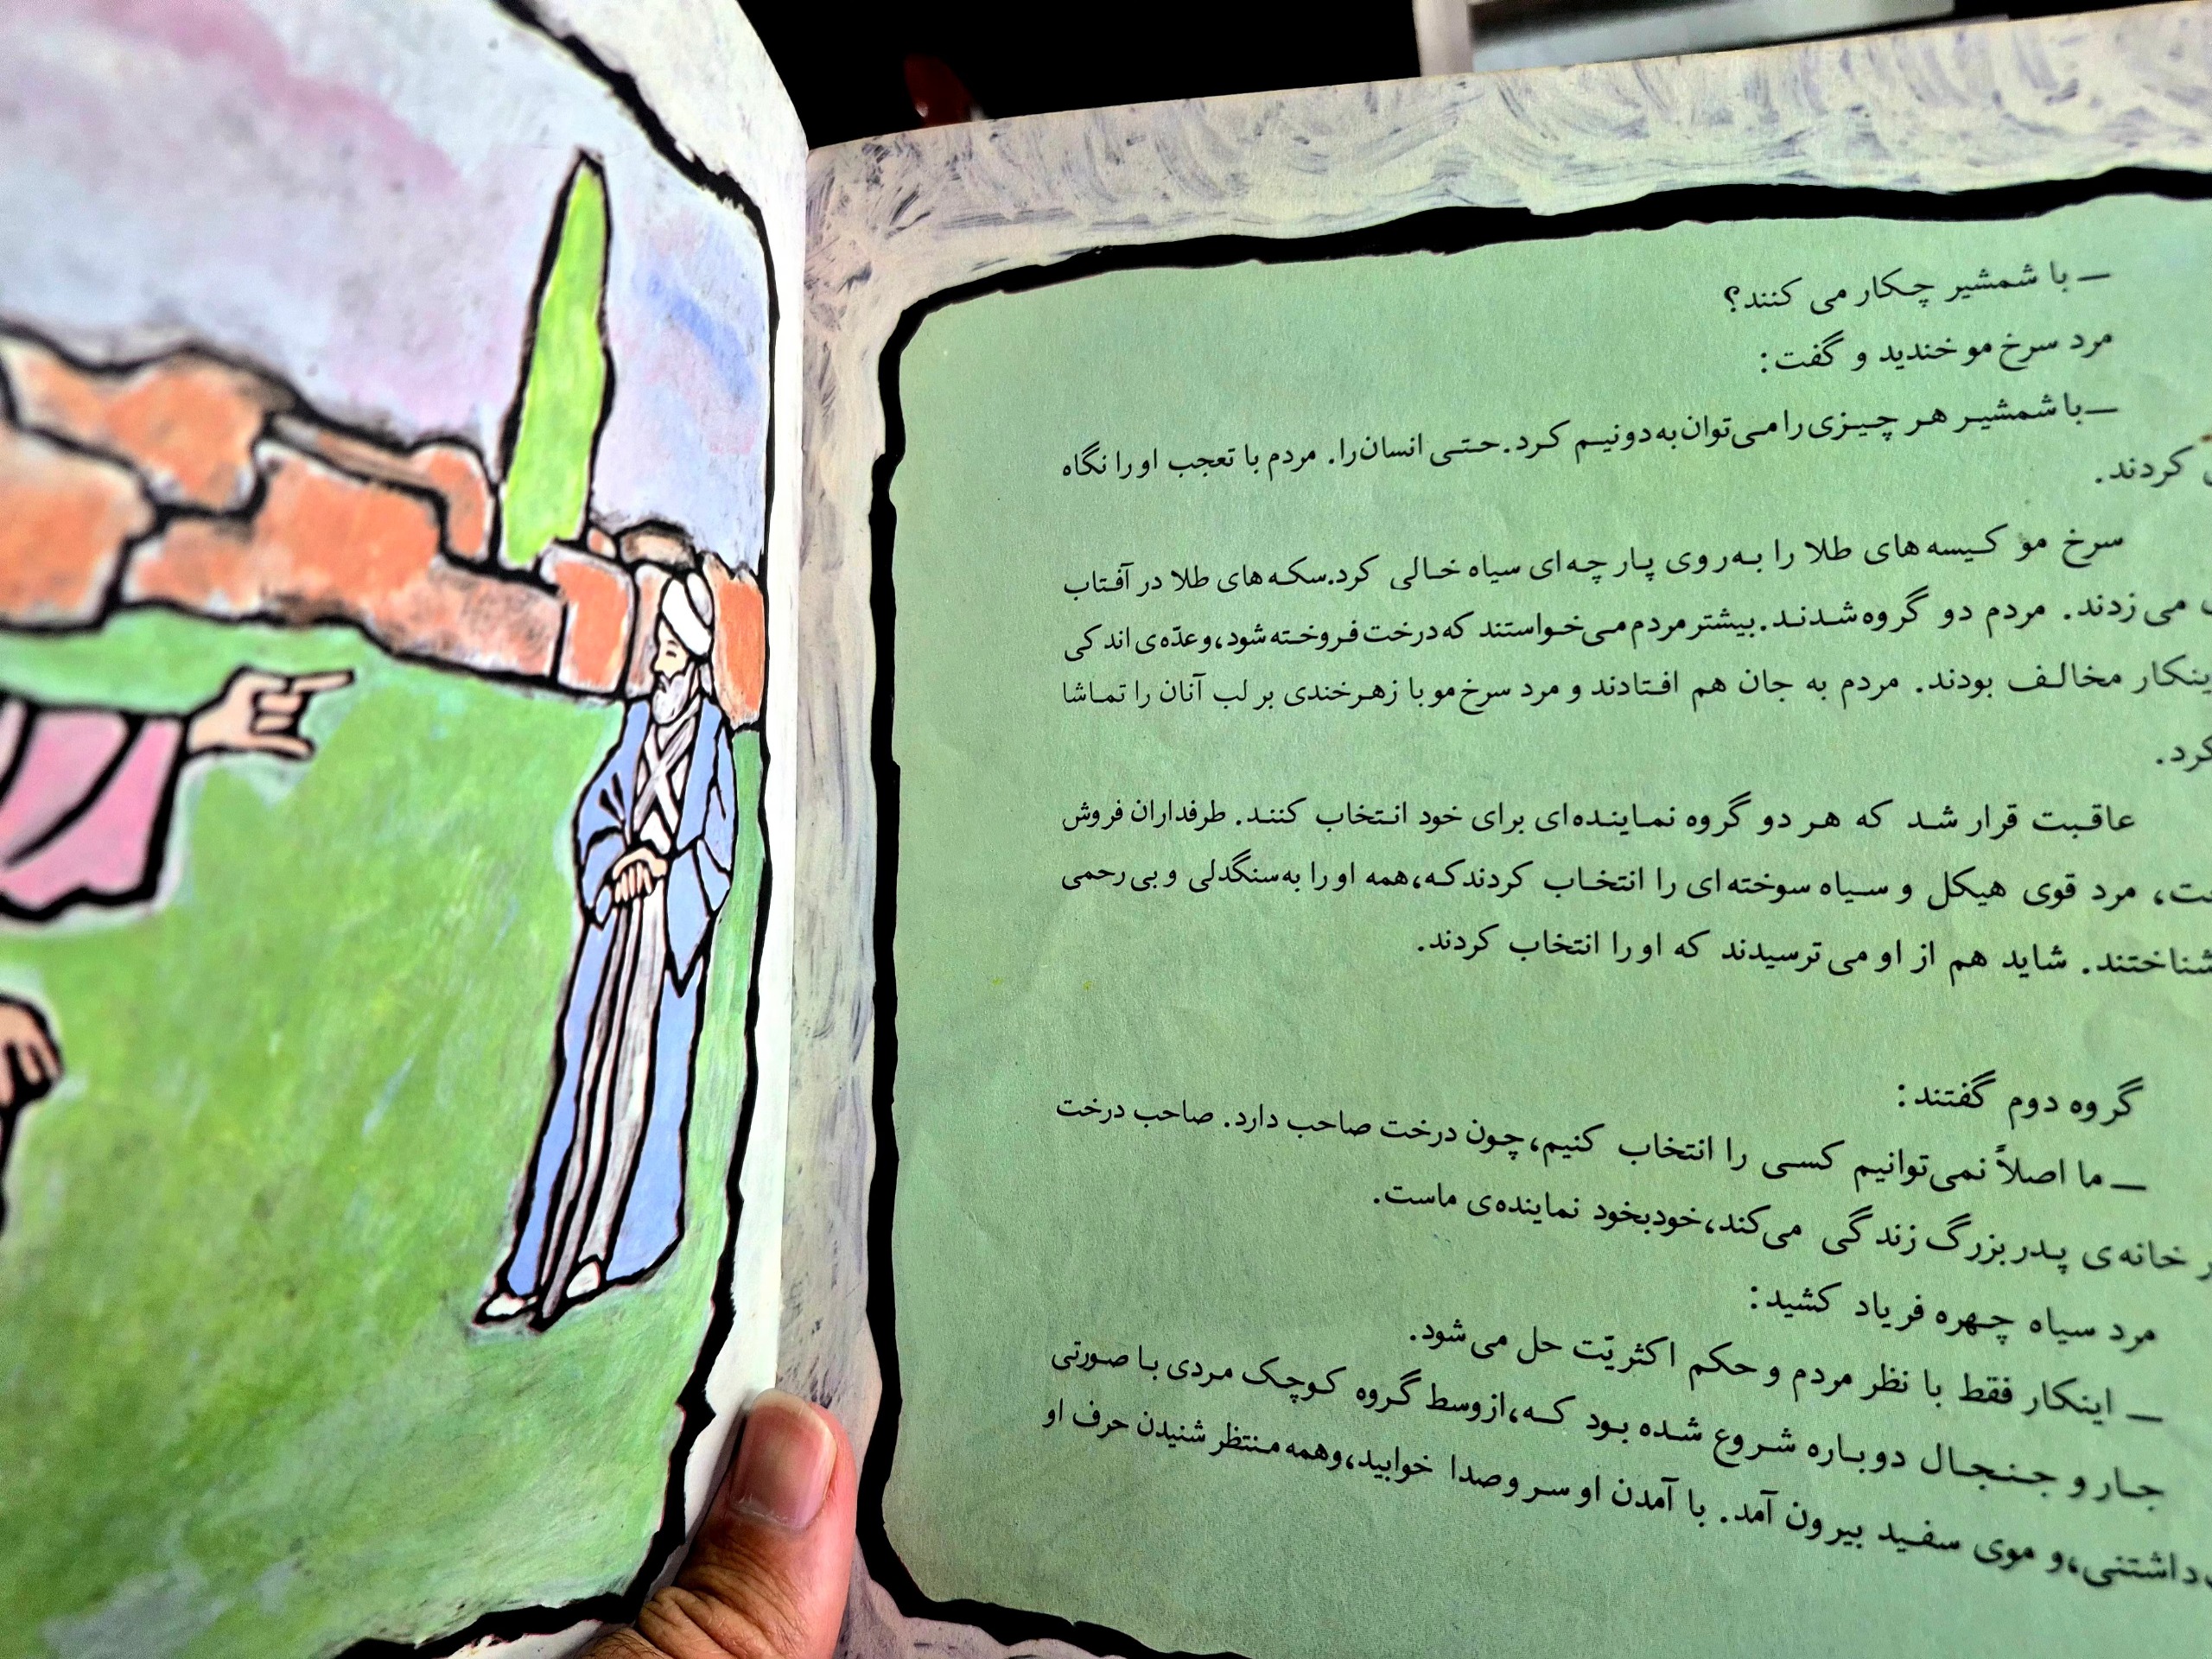 — با شمشیر چکار می کنند؟
مرد سرخ مو خندید و گفت:
— با شمشیر هر چیزی را می‌توان به دو نیم کرد. حتی انسان را. مردم با تعجب او را نگاه
کردند.
سرخ مو کیسه های طلا را به روی پارچه ای سیاه خالی کرد. سکه های طلا در آفتاب
می زدند. مردم دو گروه شدند. بیشتر مردم می‌خواستند که درخت فروخته شود، و عدّه‌ی اندکی
اینکار مخالف بودند. مردم به جان هم افتادند و مرد سرخ مو با زهرخندی بر لب آنان را تماشا
کرد.
عاقبت قرار شد که هر دو گروه نماینده‌ای برای خود انتخاب کنند. طرفداران فروش
مرد قوی هیکل و سیاه سوخته ای را انتخاب کردند که، همه او را به سنگدلی و بی رحمی
شناختند. شاید هم از او می ترسیدند که او را انتخاب کردند.
گروه دوم گفتند:
— ما اصلاً نمی‌توانیم کسی را انتخاب کنیم، چون درخت صاحب دارد. صاحب درخت
خانه‌ی پدربزرگ زندگی می‌کند، خودبخود نماینده‌ی ماست.
مرد سیاه چهره فریاد کشید:
— اینکار فقط با نظر مردم و حکم اکثریّت حل می‌شود.
جار و جنجال دوباره شروع شده بود که، از وسط گروه کوچک مردی با صورتی
داشتنی، و موی سفید بیرون آمد. با آمدن او سر و صدا خوابید، و همه منتظر شنیدن حرف او